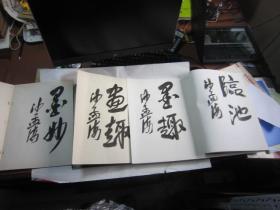 墨妙
沙孟海
畫趣
沙孟海
墨趣
沙孟海
臨池
沙孟海